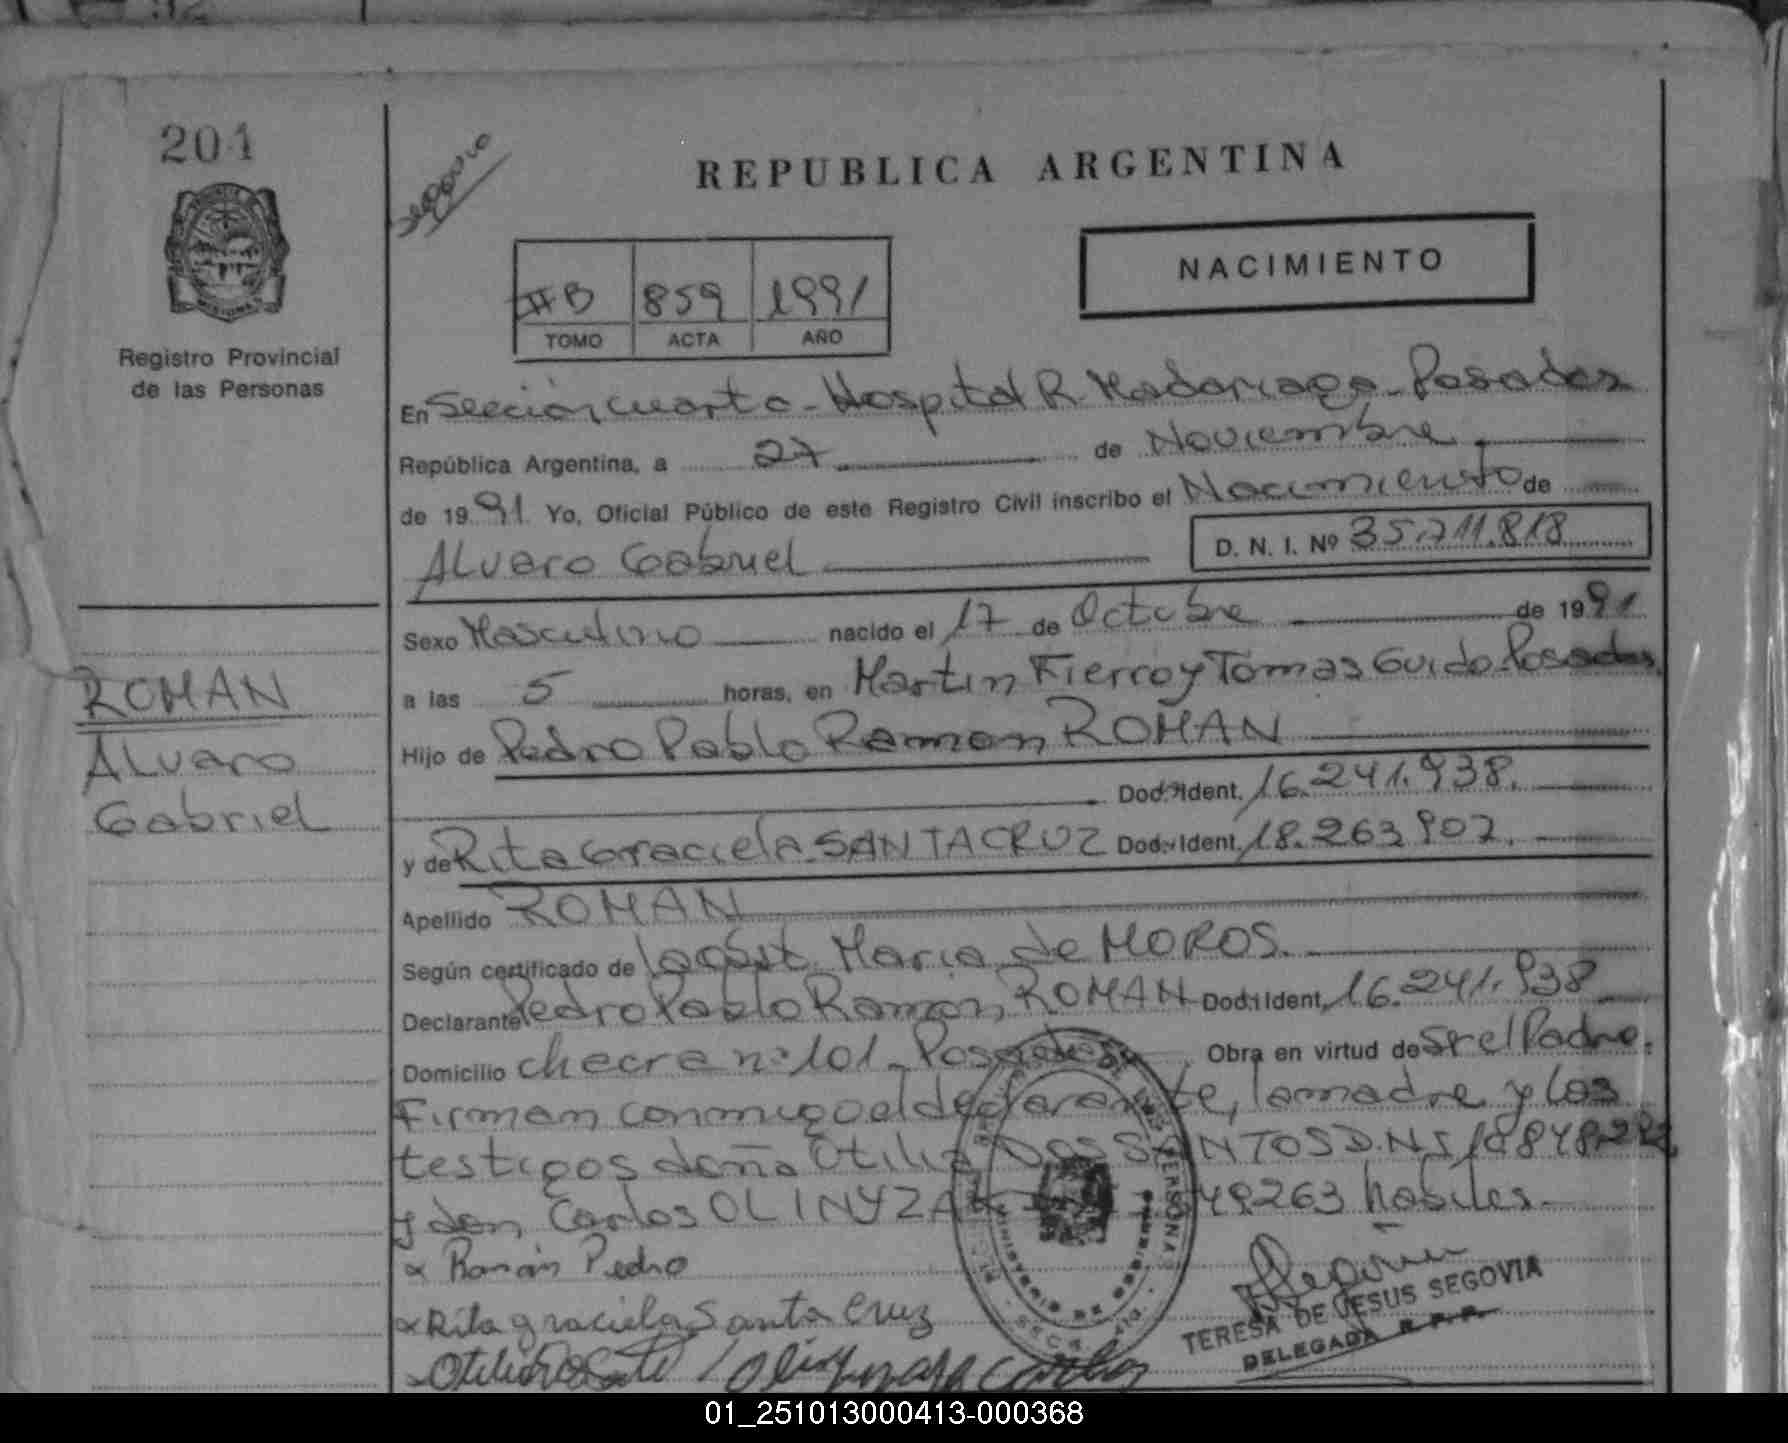 201
Registro Provincial
de las Personas
ROMAN
Alvaro
Gabriel
REPUBLICA ARGENTINA
NACIMIENTO
IIB 859 1991
TOMO ACTA AÑO
En Sección cuarta - Hospital R. Madariaga - Posadas
República Argentina, a 27 de Noviembre
de 1991 Yo, Oficial Público de este Registro Civil inscribo el Nacimiento de
Alvaro Gabriel D. N. I. Nº 35.711.818
Sexo Masculino nacido el 17 de Octubre de 1991
a las 5 horas, en Martin Fierro y Tomas Guido - Posadas
Hijo de Pedro Pablo Ramon ROMAN
Doc. Ident. 16.241.938.
y de Rita Graciela SANTACRUZ Doc. Ident. 18.263.907.
Apellido ROMAN
Según certificado de la Obst. Maria de MOROS.
Declarante Pedro Pablo Ramon ROMAN Doc. Ident. 16.241.938
Domicilio checra nº 101 - Posadas Obra en virtud de Sr el Padre.
Firman conmigo el declarante, la madre y los
testigos doña Otilia DOS SANTOS D.N.I
y don Carlos 49263 habiles.
x Román Pedro
x Rita graciela Santa Cruz
TERESA DE JESUS SEGOVIA
DELEGADA R. P. P.
01_251013000413-000368